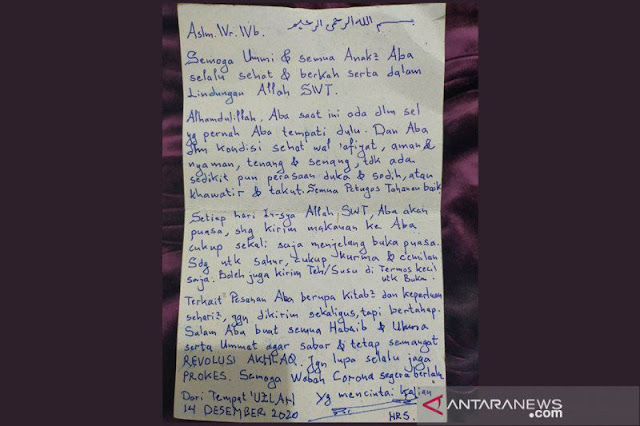 بسم الله الرحمن الرحيم
Aslm. Wr. Wb.
Semoga Ummi & semua Anak2 Aba
selalu sehat & berkah serta dalam
Lindungan Allah SWT.
Alhamdulillah, Aba saat ini ada dlm sel
yg pernah Aba tempati dulu. Dan Aba
dlm kondisi sehat wal 'afiyat, aman &
nyaman, tenang & senang, tdk ada
sedikit pun perasaan duka & sedih, atau
khawatir & takut. Semua Petugas Tahanan baik
Setiap hari In-sya Allah SWT, Aba akan
puasa, shg kirim makanan ke Aba
cukup sekali saja menjelang buka puasa.
Sdg utk sahur, cukup kurma & cemilan
saja. Boleh juga kirim Teh/Susu di Termos kecil
utk Buka.
Terkait Pesanan Aba berupa kitab2 dan keperluan
sehari2, jgn dikirim sekaligus, tapi bertahap.
Salam Aba buat semua Habaib & Ulama
serta Ummat agar sabar & tetap semangat
REVOLUSI AKHLAQ. Jgn lupa selalu jaga
PROKES. Semoga Wabah Corona segera berlalu
Dari Tempat 'UZLAH
14 DESEMBER 2020
Yg mencintai kalian
HRS.
ANTARANEWS
.com